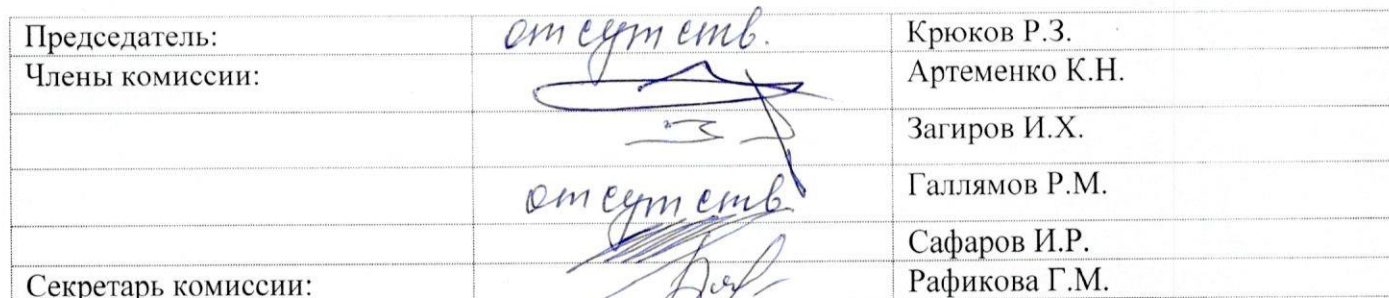 Председатель: отсутств. Крюков Р.З.
Члены комиссии: Артеменко К.Н.
Загиров И.Х.
отсутств Галлямов Р.М.
Сафаров И.Р.
Секретарь комиссии: Рафикова Г.М.